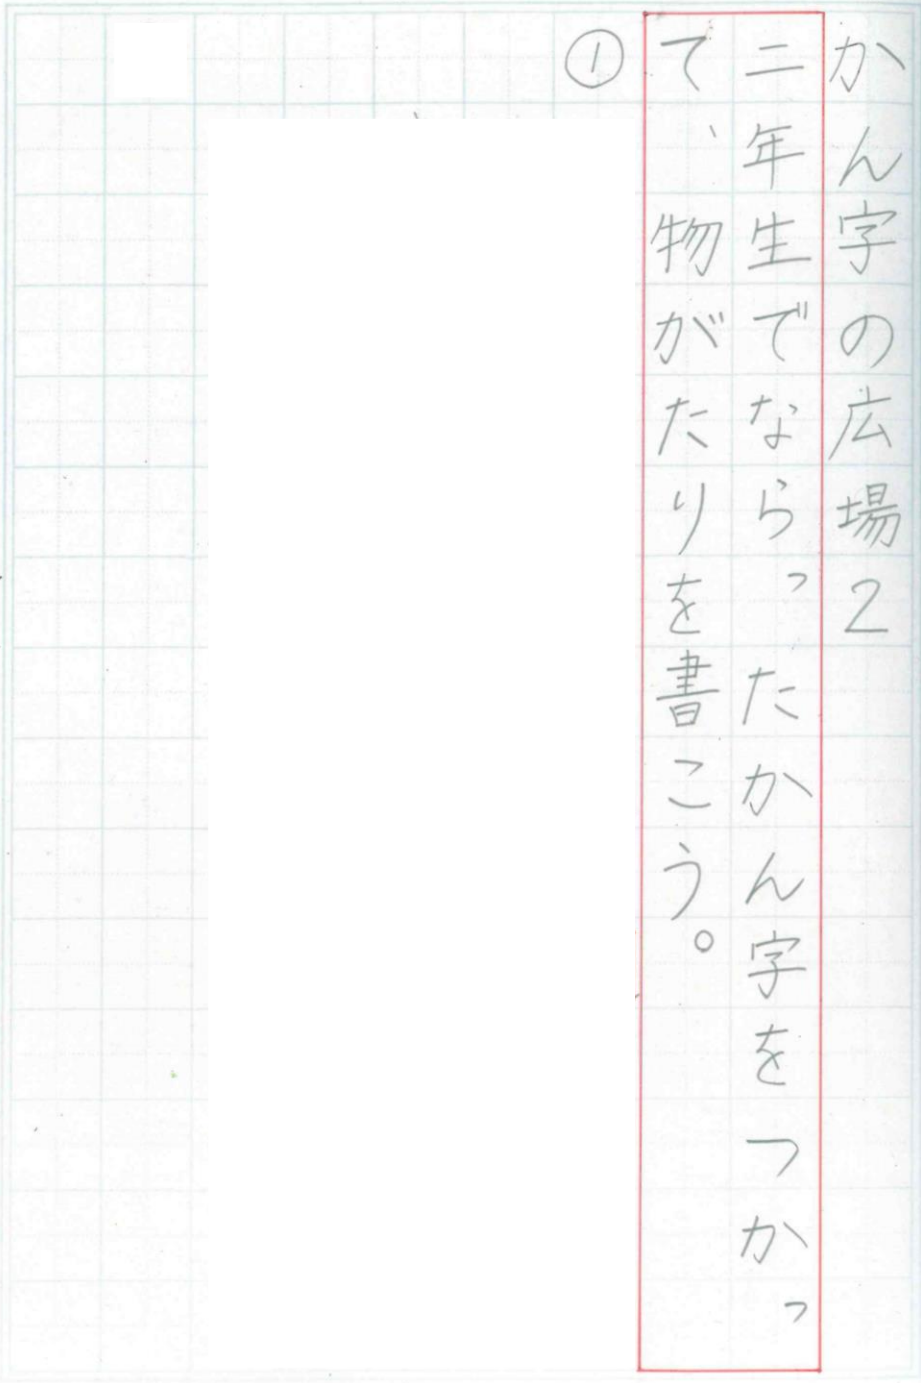 かん字の広場2
二年生でならったかん字をつかっ
て、物がたりを書こう。
①